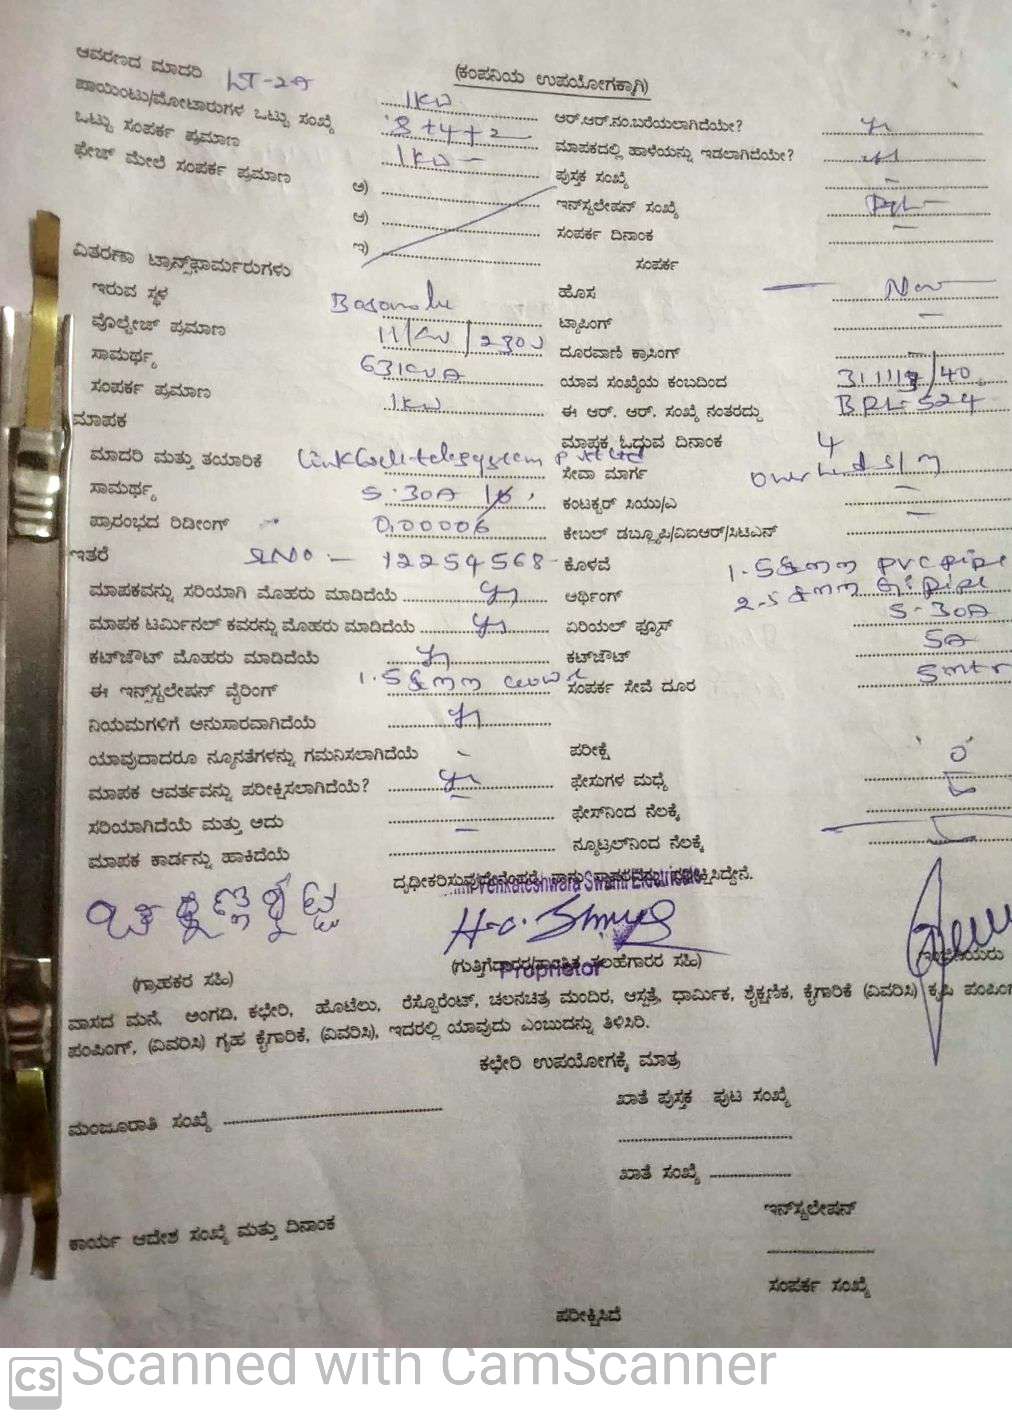 (ಕಂಪನಿಯ ಉಪಯೋಗಕ್ಕಾಗಿ)
ಆವರಣದ ಮಾದರಿ LT-2A
ಪಾಯಿಂಟು/ಮೋಟಾರುಗಳ ಒಟ್ಟು ಸಂಖ್ಯೆ 1KW ಆರ್.ಆರ್.ನಂ.ಬರೆಯಲಾಗಿದೆಯೇ?
ಒಟ್ಟು ಸಂಪರ್ಕ ಪ್ರಮಾಣ 8+4+2 ಮಾಪಕದಲ್ಲಿ ಹಾಳೆಯನ್ನು ಇಡಲಾಗಿದೆಯೇ?
ಫೇಜ್ ಮೇಲೆ ಸಂಪರ್ಕ ಪ್ರಮಾಣ 1KW - ಪುಸ್ತಕ ಸಂಖ್ಯೆ -
ಅ) ಇನ್‌ಸ್ಟಲೇಷನ್ ಸಂಖ್ಯೆ
ಆ) ಸಂಪರ್ಕ ದಿನಾಂಕ -
ಇ) ಸಂಪರ್ಕ
ವಿತರಣಾ ಟ್ರಾನ್ಸ್‌ಫಾರ್ಮರುಗಳು
ಇರುವ ಸ್ಥಳ ಹೊಸ New
ವೋಲ್ಟೇಜ್ ಪ್ರಮಾಣ 11/KV/230V ಟ್ಯಾಪಿಂಗ್ -
ಸಾಮರ್ಥ್ಯ 63KVA ದೂರವಾಣಿ ಕ್ರಾಸಿಂಗ್ -
ಸಂಪರ್ಕ ಪ್ರಮಾಣ 1KW ಯಾವ ಸಂಖ್ಯೆಯ ಕಂಬದಿಂದ
ಮಾಪಕ ಈ ಆರ್. ಆರ್. ಸಂಖ್ಯೆ ನಂತರದ್ದು BPL-524
ಮಾಪಕ ಓದುವ ದಿನಾಂಕ 4
ಮಾದರಿ ಮತ್ತು ತಯಾರಿಕೆ Linkwell telesystem pvt ltd ಸೇವಾ ಮಾರ್ಗ
ಸಾಮರ್ಥ್ಯ 5-30A ಕಂಟಕ್ಟರ್ ಸಿಯು/ಎ -
ಪ್ರಾರಂಭದ ರಿಡೀಂಗ್ 0.00006 ಕೇಬಲ್ ಡಬ್ಲ್ಯೂಪಿ/ವಿಐಆರ್/ಸಿಟಿಎನ್ -
ಇತರೆ SLNO :- 12254568 ಕೊಳವೆ
ಮಾಪಕವನ್ನು ಸರಿಯಾಗಿ ಮೊಹರು ಮಾಡಿದೆಯೆ ಆರ್ಥಿಂಗ್
ಮಾಪಕ ಟರ್ಮಿನಲ್ ಕವರನ್ನು ಮೊಹರು ಮಾಡಿದೆಯೆ ಏರಿಯಲ್ ಫ್ಯೂಸ್ 5-30A
ಕಟ್‌ಔಟ್ ಮೊಹರು ಮಾಡಿದೆಯೆ ಕಟ್‌ಔಟ್ 5A
ಈ ಇನ್‌ಸ್ಟಲೇಷನ್ ವೈರಿಂಗ್ ಸಂಪರ್ಕ ಸೇವೆ ದೂರ 5mtr
ನಿಯಮಗಳಿಗೆ ಅನುಸಾರವಾಗಿದೆಯೆ
ಯಾವುದಾದರೂ ನ್ಯೂನತೆಗಳನ್ನು ಗಮನಿಸಲಾಗಿದೆಯೆ - ಪರೀಕ್ಷೆ
ಮಾಪಕ ಆವರ್ತವನ್ನು ಪರೀಕ್ಷಿಸಲಾಗಿದೆಯೆ? ಫೇಸುಗಳ ಮಧ್ಯೆ
ಸರಿಯಾಗಿದೆಯೆ ಮತ್ತು ಅದು - ಫೇಸ್‌ನಿಂದ ನೆಲಕ್ಕೆ
ಮಾಪಕ ಕಾರ್ಡನ್ನು ಹಾಕಿದೆಯೆ - ನ್ಯೂಟ್ರಲ್‌ನಿಂದ ನೆಲಕ್ಕೆ
Venkateshwara Swami Electricals
(ಗ್ರಾಹಕರ ಸಹಿ) ಸಲಹೆಗಾರರ ಸಹಿ)
Proprietor
ವಾಸದ ಮನೆ, ಅಂಗಡಿ, ಕಛೇರಿ, ಹೊಟೆಲು, ರೆಸ್ಟೊರೆಂಟ್, ಚಲನಚಿತ್ರ ಮಂದಿರ, ಆಸ್ಪತ್ರೆ, ಧಾರ್ಮಿಕ, ಶೈಕ್ಷಣಿಕ, ಕೈಗಾರಿಕೆ (ವಿವರಿಸಿ) ಕೃಷಿ
ಪಂಪಿಂಗ್, (ವಿವರಿಸಿ) ಗೃಹ ಕೈಗಾರಿಕೆ, (ವಿವರಿಸಿ), ಇದರಲ್ಲಿ ಯಾವುದು ಎಂಬುದನ್ನು ತಿಳಿಸಿರಿ.
ಕಛೇರಿ ಉಪಯೋಗಕ್ಕೆ ಮಾತ್ರ
ಮಂಜೂರಾತಿ ಸಂಖ್ಯೆ
ಖಾತೆ ಪುಸ್ತಕ ಪುಟ ಸಂಖ್ಯೆ
ಖಾತೆ ಸಂಖ್ಯೆ
ಇನ್‌ಸ್ಟಲೇಷನ್
ಕಾರ್ಯ ಆದೇಶ ಸಂಖ್ಯೆ ಮತ್ತು ದಿನಾಂಕ
ಸಂಪರ್ಕ ಸಂಖ್ಯೆ
ಪರೀಕ್ಷಿಸಿದೆ
CS Scanned with CamScanner